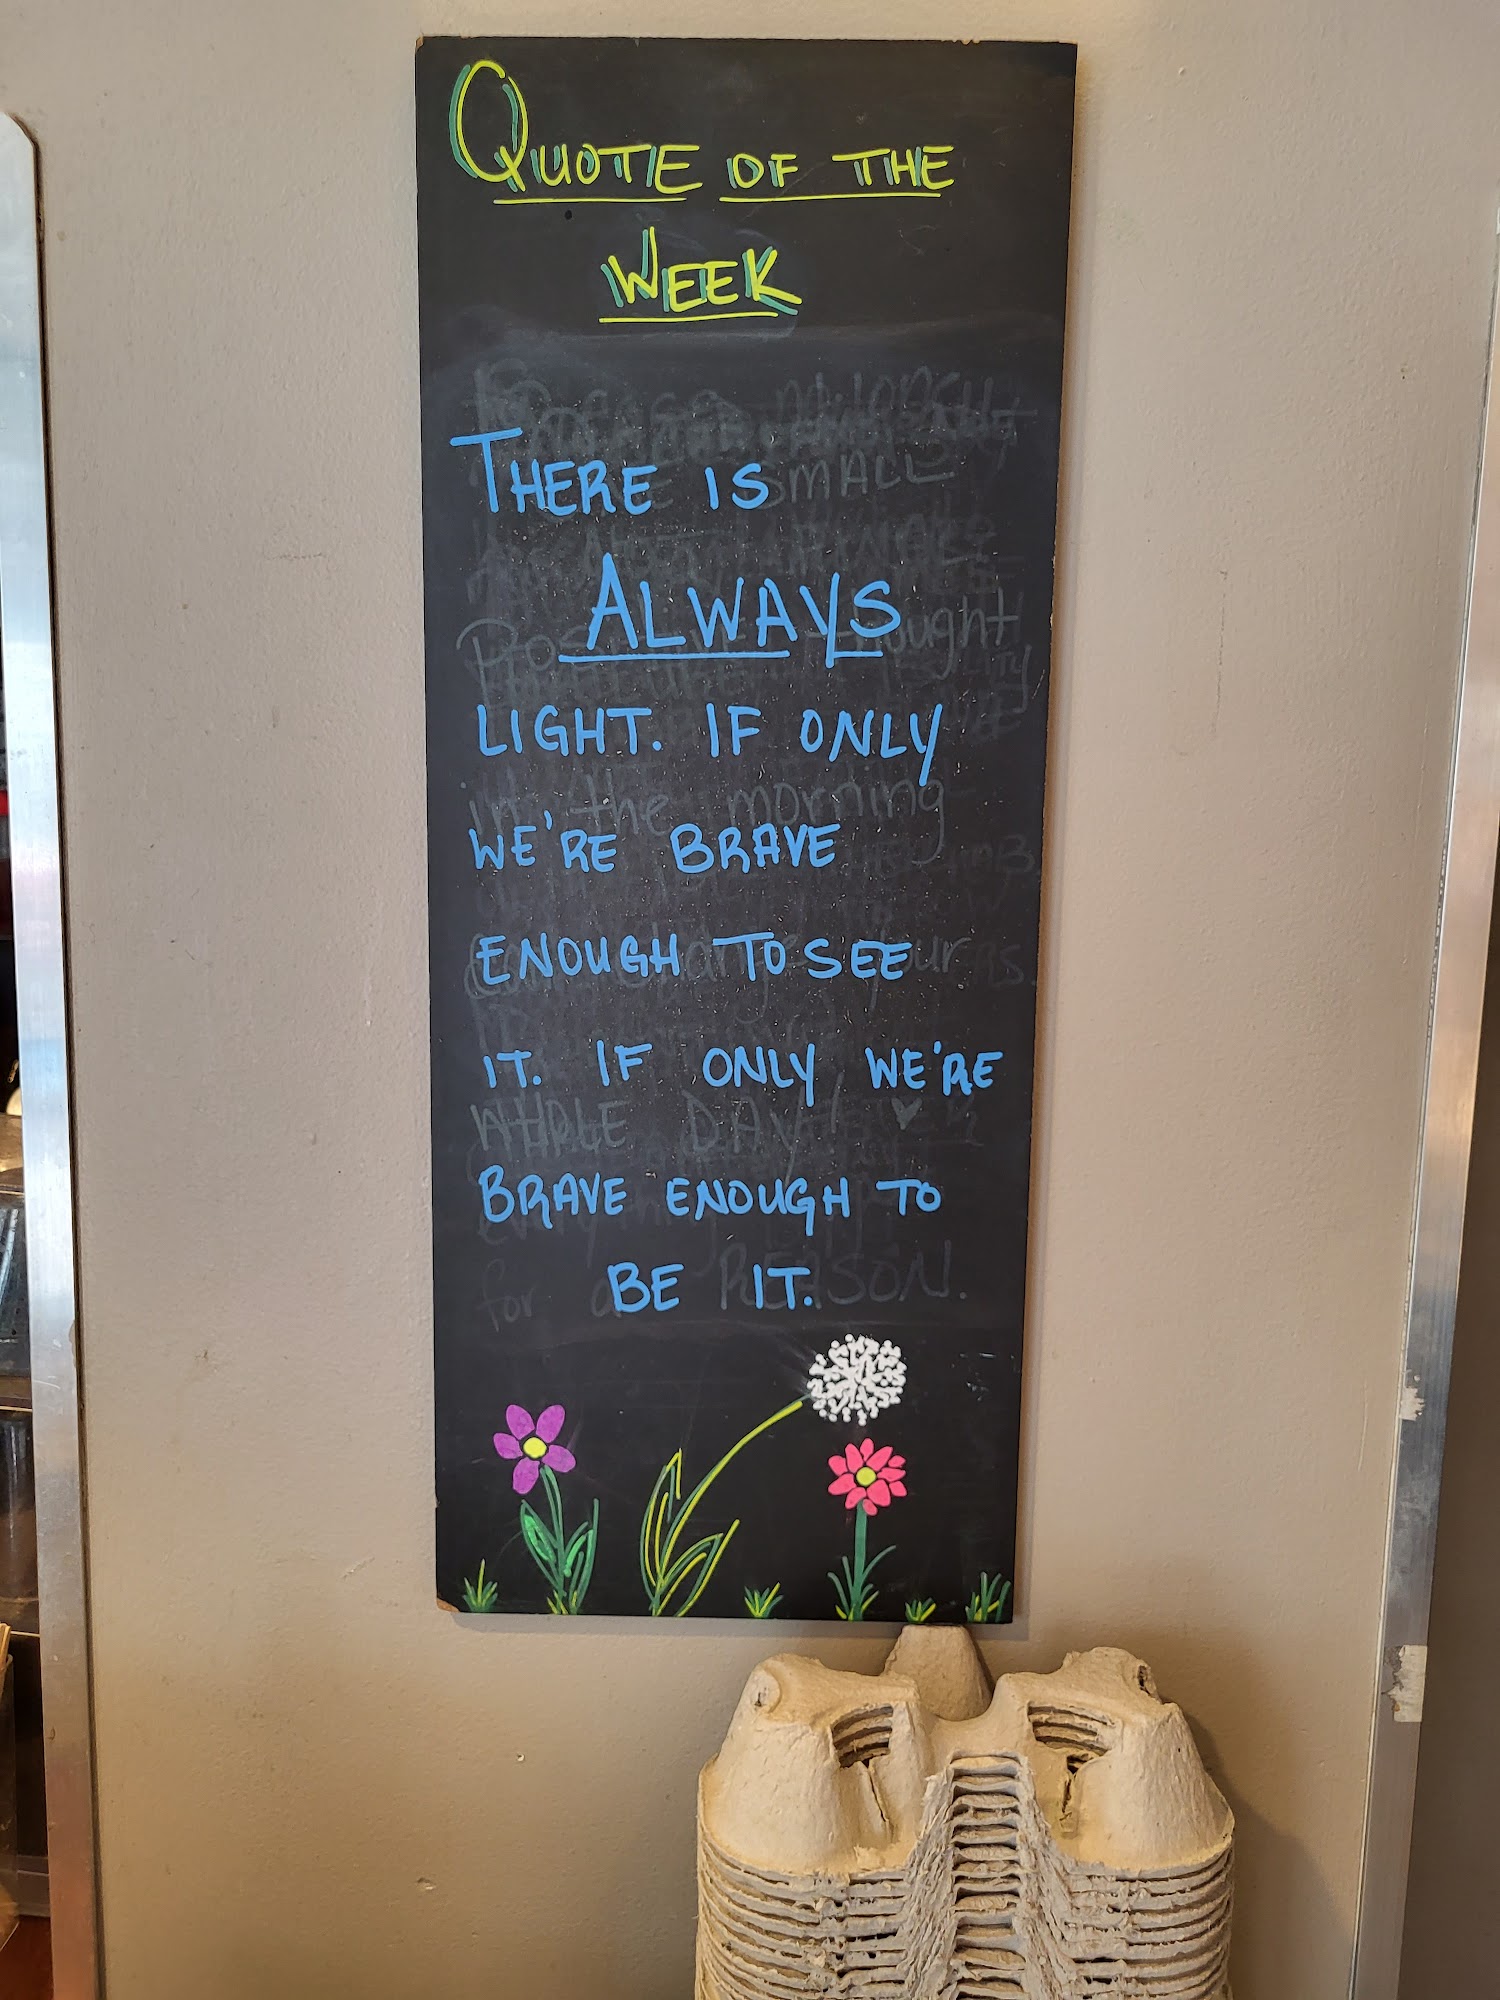 QUOTE OF THE
WEEK
THERE IS
ALWAYS
LIGHT. IF ONLY
WE'RE BRAVE
ENOUGH TO SEE
IT. IF ONLY WE'RE
BRAVE ENOUGH TO
BE IT.